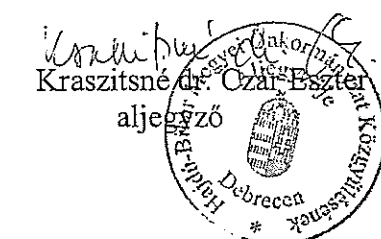 Kraszitsné dr. Czár Eszter
aljegyző
Hajdú-Bihar Megyei Önkormányzat Közgyűlésének
Aljegyzője
Debrecen
*